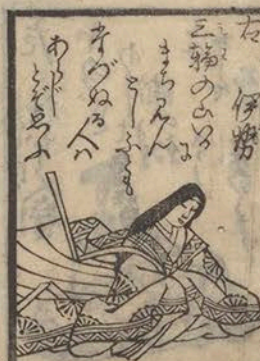 右　伊勢
三輪の山いかに
まちみん
としふとも
たづぬる人も
あらじ
とおもへば